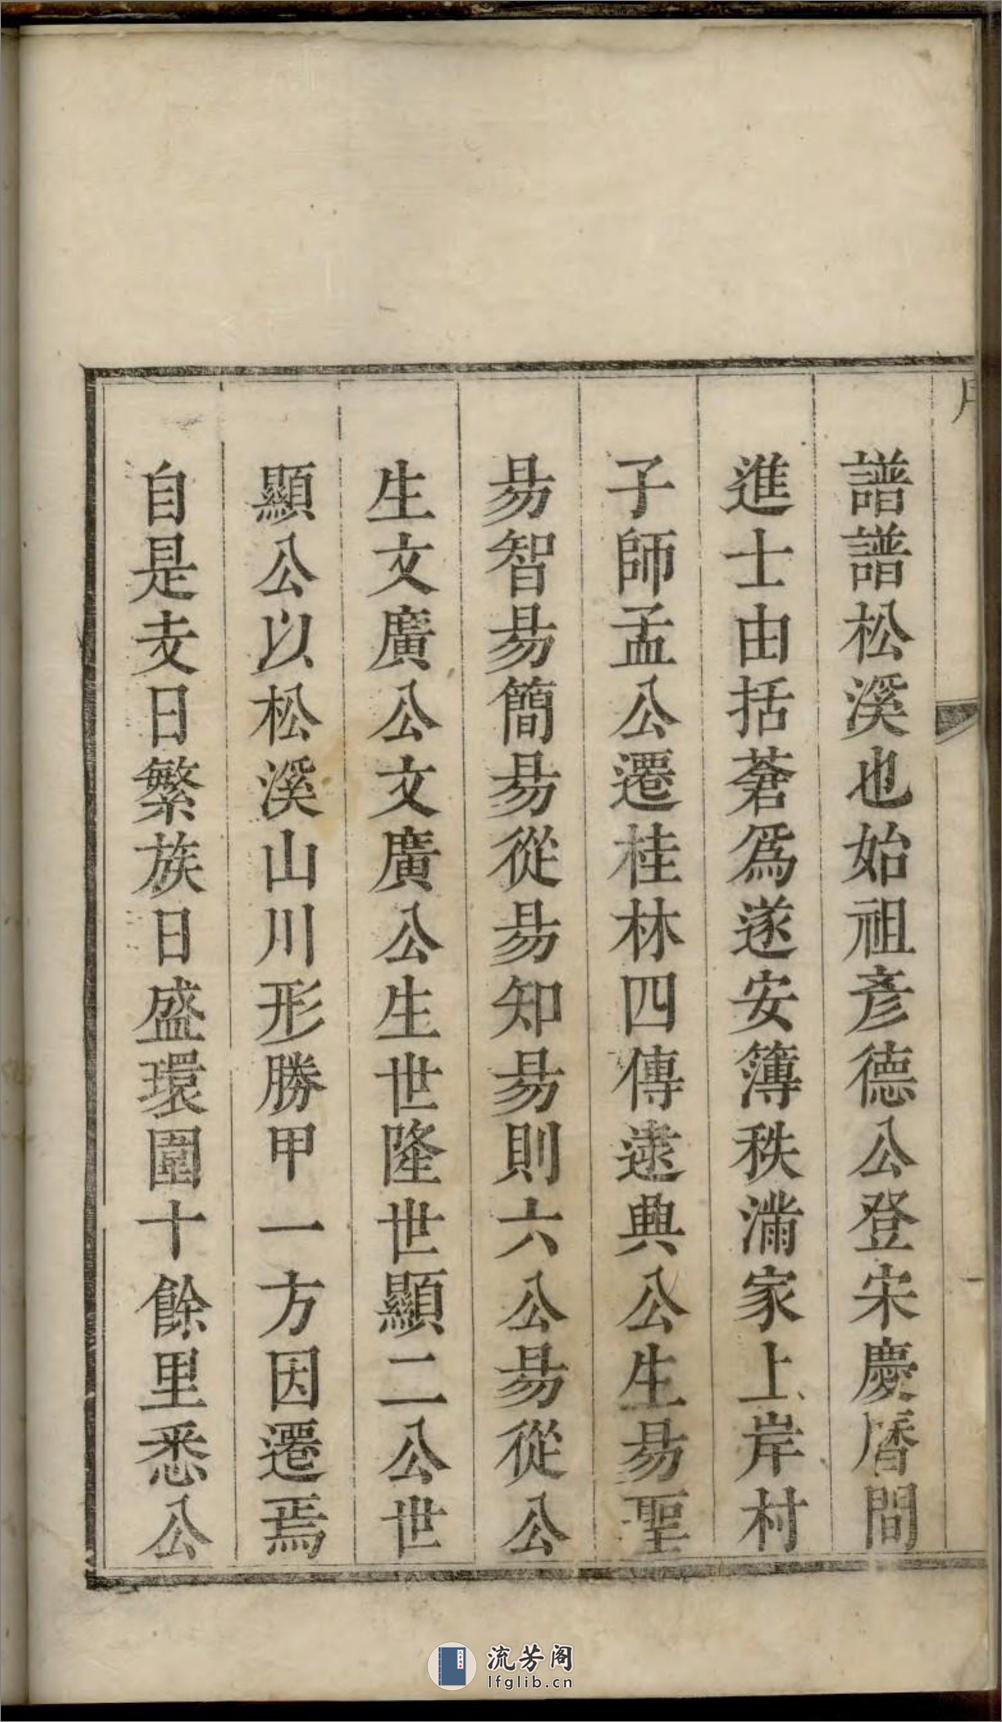 譜譜松溪也始祖彥德公登宋慶曆間
進士由括蒼爲遂安簿秩滿家上岸村
子師孟公遷桂林四傳逮典公生易聖
易智易簡易從易知易則六公易從公
生文廣公文廣公生世隆世顯二公世
顯公以松溪山川形勝甲一方因遷焉
自是支日繁族日盛環圍十餘里悉公
流芳阁
lfglib.cn